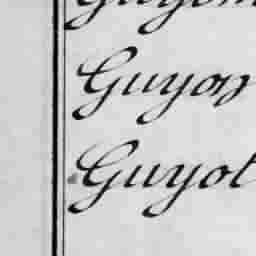 Guyon
Guyot